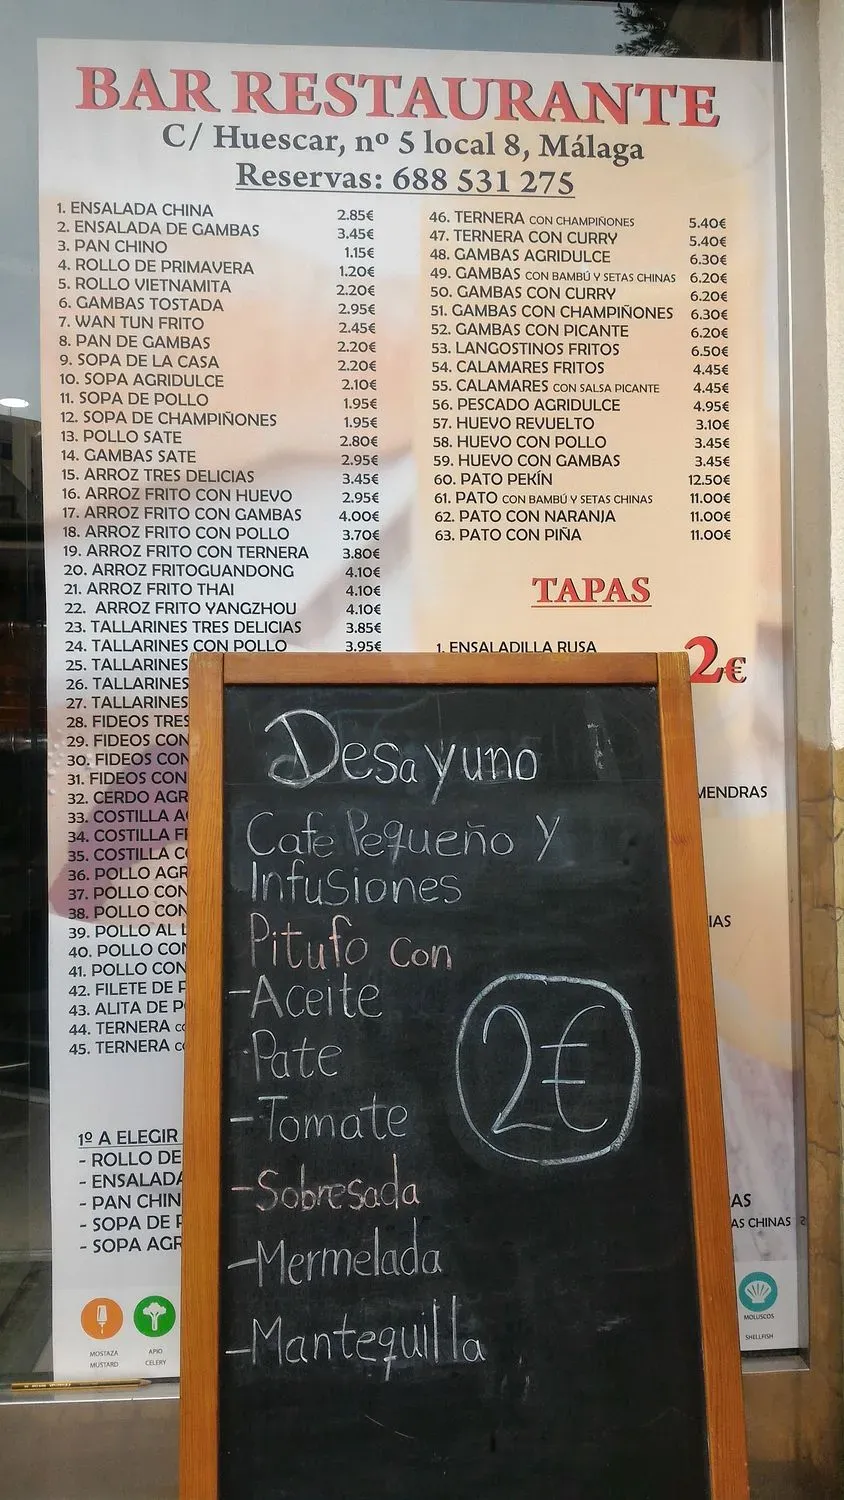 BAR RESTAURANTE
C/ Huescar, nº 5 local 8, Málaga
Reservas: 688 531 275
1. ENSALADA CHINA 2.85€
2. ENSALADA DE GAMBAS 3.45€
3. PAN CHINO 1.15€
4. ROLLO DE PRIMAVERA 1.20€
5. ROLLO VIETNAMITA 2.20€
6. GAMBAS TOSTADA 2.95€
7. WAN TUN FRITO 2.45€
8. PAN DE GAMBAS 2.20€
9. SOPA DE LA CASA 2.20€
10. SOPA AGRIDULCE 2.10€
11. SOPA DE POLLO 1.95€
12. SOPA DE CHAMPIÑONES 1.95€
13. POLLO SATE 2.80€
14. GAMBAS SATE 2.95€
15. ARROZ TRES DELICIAS 3.45€
16. ARROZ FRITO CON HUEVO 2.95€
17. ARROZ FRITO CON GAMBAS 4.00€
18. ARROZ FRITO CON POLLO 3.70€
19. ARROZ FRITO CON TERNERA 3.80€
20. ARROZ FRITOGUANDONG 4.10€
21. ARROZ FRITO THAI 4.10€
22. ARROZ FRITO YANGZHOU 4.10€
23. TALLARINES TRES DELICIAS 3.85€
24. TALLARINES CON POLLO 3.95€
25. TALLARINES
26. TALLARINES
27. TALLARINES
28. FIDEOS TRES
29. FIDEOS CON
30. FIDEOS CON
31. FIDEOS CON
32. CERDO AGR
33. COSTILLA A
34. COSTILLA F
35. COSTILLA C
36. POLLO AGR
37. POLLO CON
38. POLLO CON
39. POLLO AL
40. POLLO CON
41. POLLO CON
42. FILETE DE P
43. ALITA DE P
44. TERNERA
45. TERNERA
1º A ELEGIR
- ROLLO DE
- ENSALADA
- PAN CHIN
- SOPA DE P
- SOPA AGR
MOSTAZA
MUSTARD
APIO
CELERY
46. TERNERA CON CHAMPIÑONES 5.40€
47. TERNERA CON CURRY 5.40€
48. GAMBAS AGRIDULCE 6.30€
49. GAMBAS CON BAMBÚ Y SETAS CHINAS 6.20€
50. GAMBAS CON CURRY 6.20€
51. GAMBAS CON CHAMPIÑONES 6.30€
52. GAMBAS CON PICANTE 6.20€
53. LANGOSTINOS FRITOS 6.50€
54. CALAMARES FRITOS 4.45€
55. CALAMARES CON SALSA PICANTE 4.45€
56. PESCADO AGRIDULCE 4.95€
57. HUEVO REVUELTO 3.10€
58. HUEVO CON POLLO 3.45€
59. HUEVO CON GAMBAS 3.45€
60. PATO PEKÍN 12.50€
61. PATO CON BAMBÚ Y SETAS CHINAS 11.00€
62. PATO CON NARANJA 11.00€
63. PATO CON PIÑA 11.00€
TAPAS
1. ENSALADILLA RUSA
2€
MENDRAS
IAS
AS
AS CHINAS
MOLUSCOS
SHELLFISH
Desayuno
Cafe Pequeño Y
Infusiones
Pitufo con
-Aceite
-Pate
-Tomate
-Sobresada
-Mermelada
-Mantequilla
2€